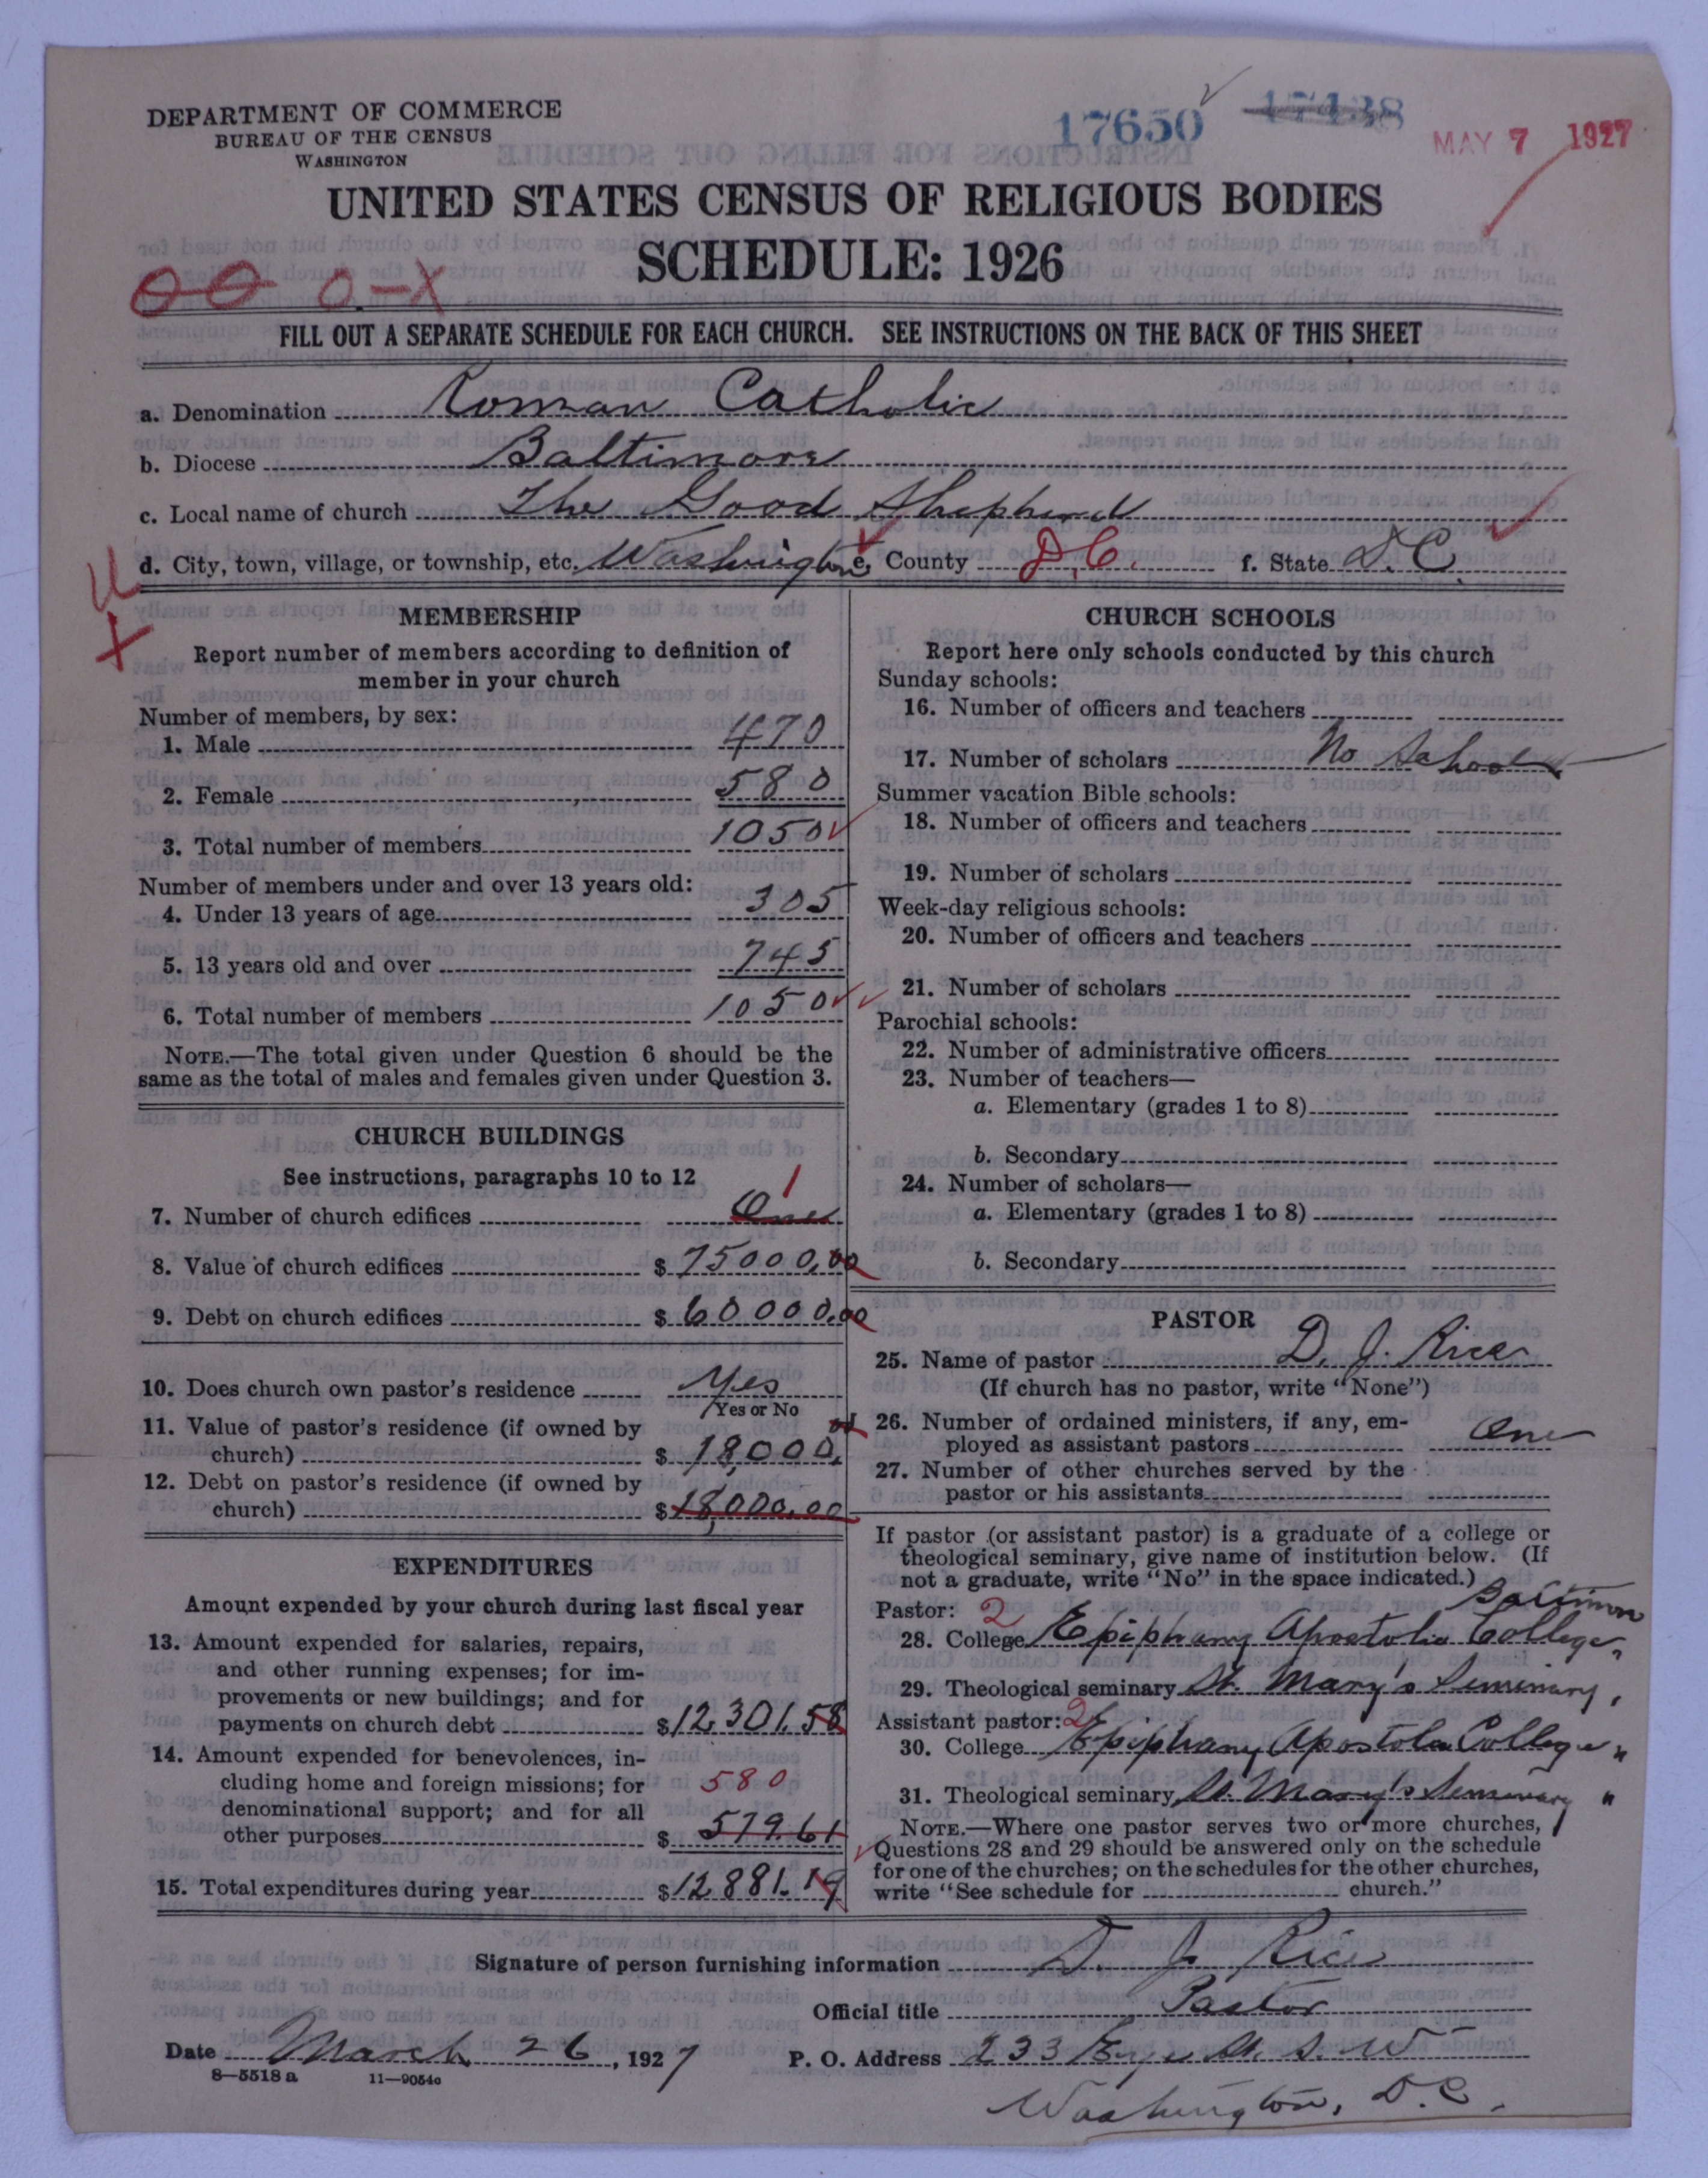 DEPARTMENT OF COMMERCE
BUREAU OF THE CENSUS
WASHINGTON
17650 17438
MAY 7 1927
UNITED STATES CENSUS OF RELIGIOUS BODIES
SCHEDULE: 1926
O-X
FILL OUT A SEPARATE SCHEDULE FOR EACH CHURCH. SEE INSTRUCTIONS ON THE BACK OF THIS SHEET
a. Denomination Roman Catholic
b. Diocese Baltimore
c. Local name of church The Good Shepherd
d. City, town, village, or township, etc. Washington e. County D.C. f. State D.C.
MEMBERSHIP
Report number of members according to definition of
member in your church
Number of members, by sex:
1. Male 470
2. Female 580
3. Total number of members 1050
Number of members under and over 13 years old:
4. Under 13 years of age 305
5. 13 years old and over 745
6. Total number of members 1050
NOTE.—The total given under Question 6 should be the
same as the total of males and females given under Question 3.
CHURCH BUILDINGS
See instructions, paragraphs 10 to 12
7. Number of church edifices One 1
8. Value of church edifices $ 75000.00
9. Debt on church edifices $ 60000.00
10. Does church own pastor's residence Yes
Yes or No
11. Value of pastor's residence (if owned by
church) $ 18,000.00
12. Debt on pastor's residence (if owned by
church) $ 18,000.00
EXPENDITURES
Amount expended by your church during last fiscal year
13. Amount expended for salaries, repairs,
and other running expenses; for im-
provements or new buildings; and for
payments on church debt $ 12,301.58
14. Amount expended for benevolences, in-
cluding home and foreign missions; for 580
denominational support; and for all
other purposes $ 579.61
15. Total expenditures during year $ 12881.19
CHURCH SCHOOLS
Report here only schools conducted by this church
Sunday schools:
16. Number of officers and teachers
17. Number of scholars No School
Summer vacation Bible schools:
18. Number of officers and teachers
19. Number of scholars
Week-day religious schools:
20. Number of officers and teachers
21. Number of scholars
Parochial schools:
22. Number of administrative officers
23. Number of teachers—
a. Elementary (grades 1 to 8)
b. Secondary
24. Number of scholars—
a. Elementary (grades 1 to 8)
b. Secondary
PASTOR
25. Name of pastor D. J. Rice
(If church has no pastor, write "None")
26. Number of ordained ministers, if any, em-
ployed as assistant pastors One
27. Number of other churches served by the
pastor or his assistants
If pastor (or assistant pastor) is a graduate of a college or
theological seminary, give name of institution below. (If
not a graduate, write "No" in the space indicated.)
Pastor: 2 Baltimore
28. College Epiphany Apostolic College,
29. Theological seminary St. Mary's Seminary,
Assistant pastor: 2
30. College Epiphany Apostolic College "
31. Theological seminary St. Mary's Seminary "
NOTE.—Where one pastor serves two or more churches,
Questions 28 and 29 should be answered only on the schedule
for one of the churches; on the schedules for the other churches,
write "See schedule for church."
Signature of person furnishing information D. J. Rice
Official title Pastor
Date March 26, 1927 P. O. Address 233 Eye St. S. W
8—5518 a 11—9054a
Washington, D.C.